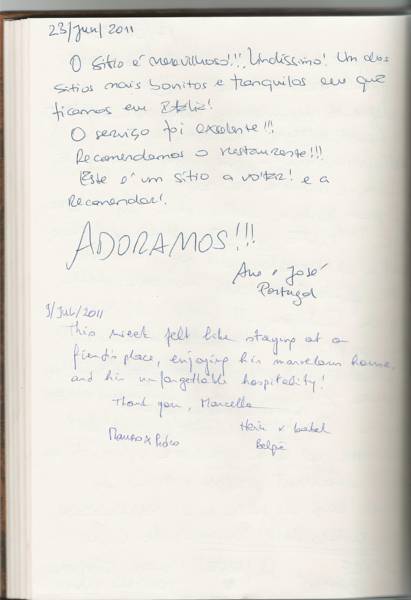 23/Jun/2011
O sítio é maravilhoso!!! Lindíssimo! Um dos
sítios mais bonitos e tranquilos em que
ficamos em Itália!
O serviço foi excelente!!!
Recomendamos o restaurante!!!
Este é um sítio a voltar! e a
Recomendar!
ADORAMOS!!!
Ana e José
Portugal
3/Jul/2011
This week felt like staying at a
friend's place, enjoying his marvelous house,
and his unforgettable hospitality!
Thank you, Marcella
Hein & Isabel
België